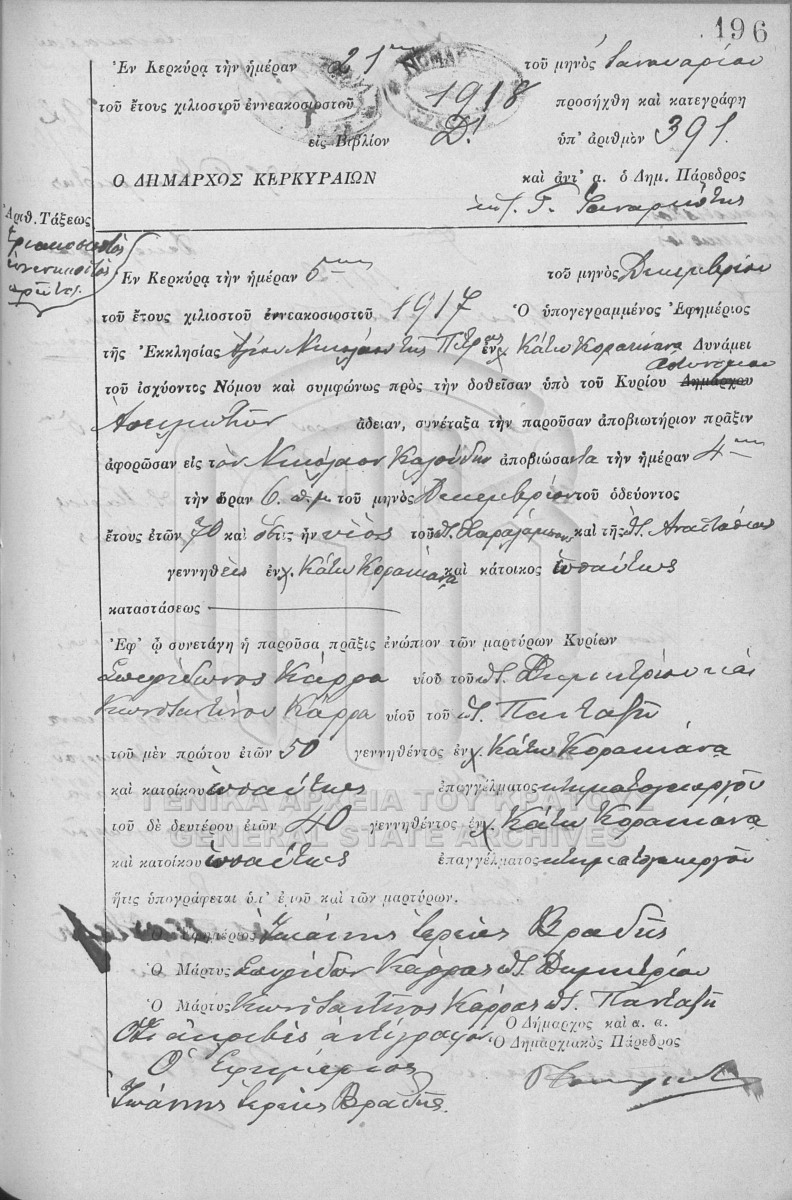 196
Ἐν Κερκύρᾳ τὴν ἡμέραν 21ην τοῦ μηνὸς Ἰανουαρίου
τοῦ ἔτους χιλιοστοῦ ἐννεακοσιοστοῦ 1918 προσήχθη καὶ κατεγράφη
εἰς Βιβλίον Δ! ὑπ' ἀριθμὸν 391.
Ο ΔΗΜΑΡΧΟΣ ΚΕΡΚΥΡΑΙΩΝ καὶ ἀντ' α. ὁ Δημ. Πάρεδρος
Ἀριθ. Τάξεως
Τριακοσιοστὸς
ἐνενηκοστὸς
πρῶτος
Ἐν Κερκύρᾳ τὴν ἡμέραν 5ην τοῦ μηνὸς Δεκεμβρίου
τοῦ ἔτους χιλιοστοῦ ἐννεακοσιοστοῦ 1917 Ὁ ὑπογεγραμμένος Ἐφημέριος
τῆς Ἐκκλησίας Ἁγίου Νικολάου τῆς ἐν χ. Κάτω Κορακιάνα Δυνάμει
τοῦ ἰσχύοντος Νόμου καὶ συμφώνως πρὸς τὴν δοθεῖσαν ὑπὸ τοῦ Κυρίου Δημάρχου Ἀστυνόμου
ἄδειαν, συνέταξα τὴν παροῦσαν ἀποβιωτήριον πρᾶξιν
ἀφορῶσαν εἰς τὸν Νικόλαον Καλούδην ἀποβιώσαντα τὴν ἡμέραν 4ην
τὴν ὥραν 6. π.μ. τοῦ μηνὸς Δεκεμβρίου τοῦ ὁδεύοντος
ἔτους ἐτῶν 70 καὶ ὅστις ἦν υἱὸς τοῦ π. Χαραλάμπους καὶ τῆς π. Ἀναστασίας
γεννηθεὶς ἐν χ. Κάτω Κορακιάνα καὶ κάτοικος ὡσαύτως
καταστάσεως
Ἐφ' ᾧ συνετάγη ἡ παροῦσα πρᾶξις ἐνώπιον τῶν μαρτύρων Κυρίων
Σπυρίδωνος Κάρρα υἱοῦ τοῦ π. Δημητρίου καὶ
Κωνσταντίνου Κάρρα υἱοῦ τοῦ π. Πανταζῆ
τοῦ μὲν πρώτου ἐτῶν 50 γεννηθέντος ἐν χ. Κάτω Κορακιάνα
καὶ κατοίκου ὡσαύτως ἐπαγγέλματος κτηματογεωργοῦ
ΓΕΝΙΚΑ ΑΡΧΕΙΑ ΤΟΥ ΚΡΑΤΟΥΣ
τοῦ δὲ δευτέρου ἐτῶν 40 γεννηθέντος ἐν χ. Κάτω Κορακιάνα
GENERAL STATE ARCHIVES
καὶ κατοίκου ὡσαύτως ἐπαγγέλματος κτηματογεωργοῦ
ἥτις ὑπογράφεται ὑπ' ἐμοῦ καὶ τῶν μαρτύρων.
Ὁ Ἐφημέριος Ἰωάννης ἱερεὺς Βραδῆς
Ὁ Μάρτυς Σπυρίδων Κάρρας π. Δημητρίου
Ὁ Μάρτυς Κωνσταντῖνος Κάρρας π. Πανταζῆ
Ὅτι ἀκριβὲς ἀντίγραφον
Ὁ Δήμαρχος καὶ α. α.
Ὁ Δημαρχιακὸς Πάρεδρος
Ὁ Ἐφημέριος
Ἰωάννης ἱερεὺς Βραδῆς.